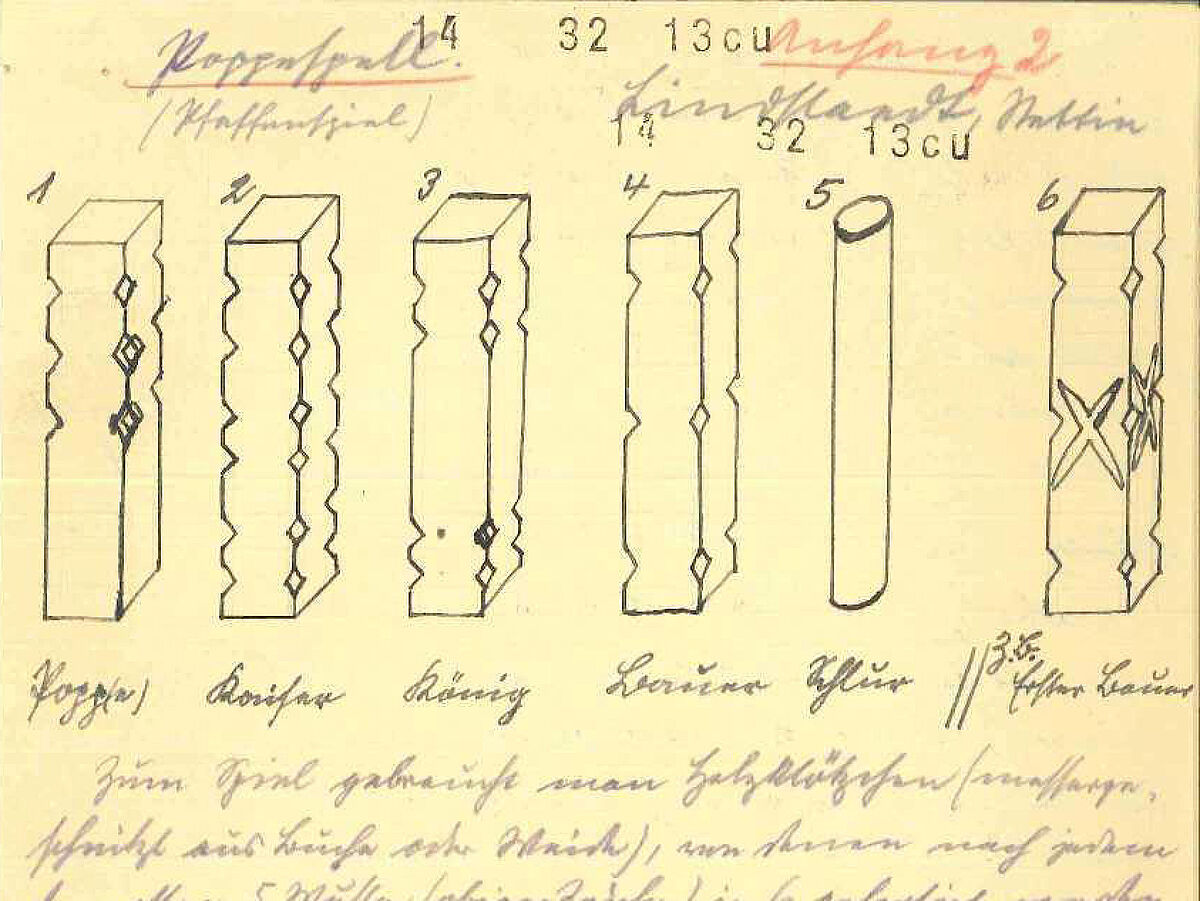 14 32 13cu
Poppespell. Anfang 2
(Pfaffenspiel) Lindstaedt, Stettin
14 32 13cu
1 2 3 4 5 6
Popp(e) Kaiser König Bauer Schlur // z.B. Erster Bauer
Zum Spiel gebraucht man Holzklötzchen (messerge-
schnitzt aus Buche oder Weide), von denen nach jedem
5 in 6